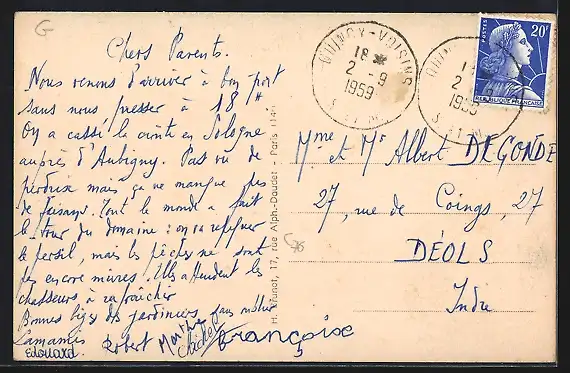 G
Chers Parents.
Nous venons d'arriver à bon port
sans nous presser à 18 H
On a cassé la croûte en Sologne
auprès d'Aubigny. Pas vu de
perdrix mais ça ne manque pas
de faisans. Tout le monde a fait
le tour du domaine : on va
le persil, mais les pêches ne sont
pas encore mûres. Ils attendent les
chasseurs à rafraîchir
Bonnes bises des jardiniers sans oublier
Edouard Robert Marthe Michel Françoise
QUINCY-VOISINS
18 *
2 - 9
1959
S. ET M.
QUINCY
2
1959
S. ET M.
POSTES
20F
REPUBLIQUE FRANÇAISE
Mme et Mr Albert DEGONDE
27, rue de Coings, 27
DÉOLS
Indre
C76
H. Brunot, 17, rue Alph.-Daudet - Paris (14e)